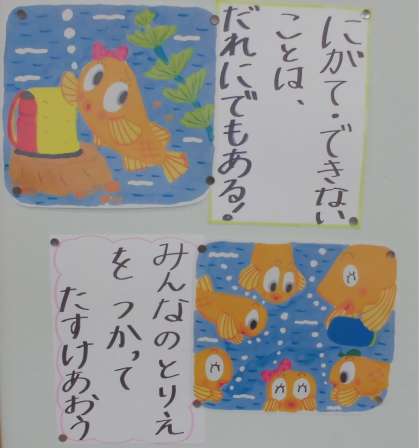 にがて・できない
ことは、
だれにでもある!
みんなのとりえ
をつかって
たすけあおう